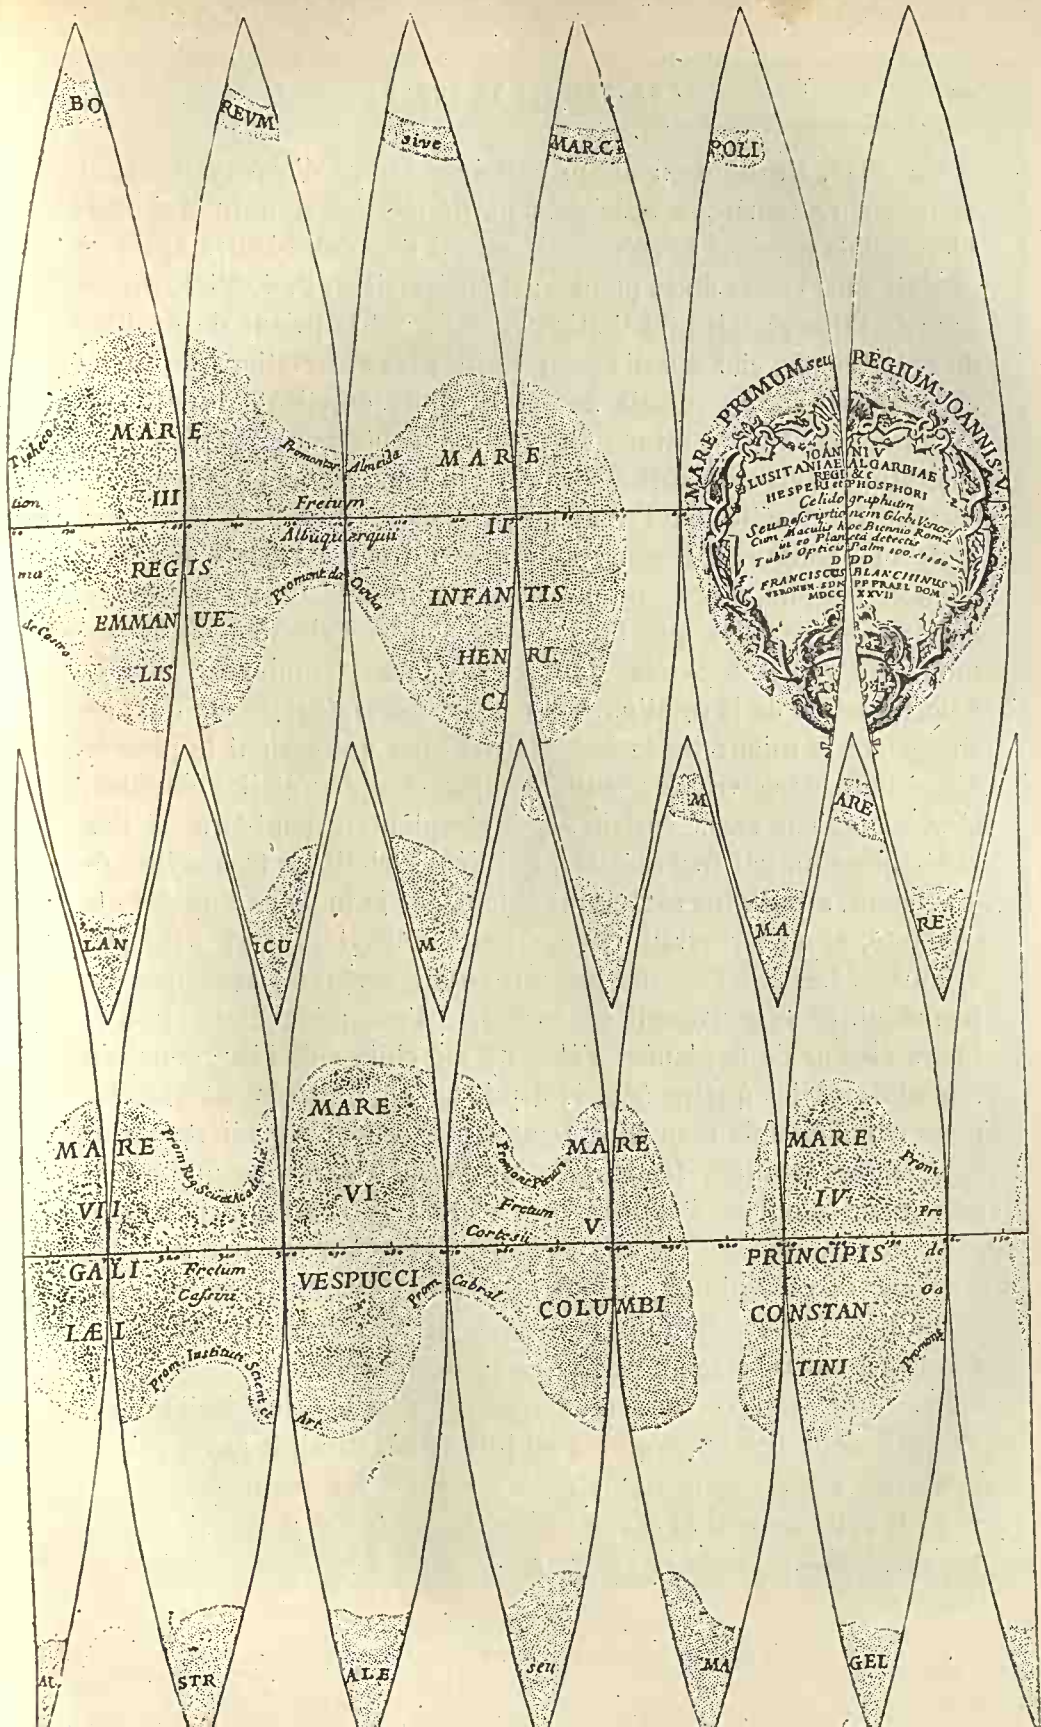 BO REVM sive MARCI POLI
MARE PRIMUM seu REGIUM JOANNIS V.
JOANNI V
LUSITANIAE ALGARBIAE
REGI &c
HESPERI et PHOSPHORI
Celidographum
Seu Descriptionem Globi Veneris
Cum Maculis hoc Biennio Romæ
in eo Planeta detectis
Tubis Opticis Palm 100. et
D DD
FRANCISCUS BLANCHINUS
VERONEN. SDN PP PRAEL DOM
MDCC XXVII
MARE
III
REGIS
EMMAN UE.
LIS
tion.
ma
Promontor Almeida
Fretum
Albuquerquii
MARE
II
INFANTIS
HENRI.
CI
M ARE
LAN ICU M MA RE
MARE
VII
GALI
LÆI
Prom Reg. Scient Academiæ
Fretum
Cassini
Prom. Instituti Scient et Art.
MARE
VI
VESPUCCI
Prom Cabral
Fretum
Cortesii
MARE
V
COLUMBI
MARE
IV
PRINCIPIS
CONSTAN
TINI
Prom
Fre
de
Ga
Promont
AU STR ALE seu MA GEL